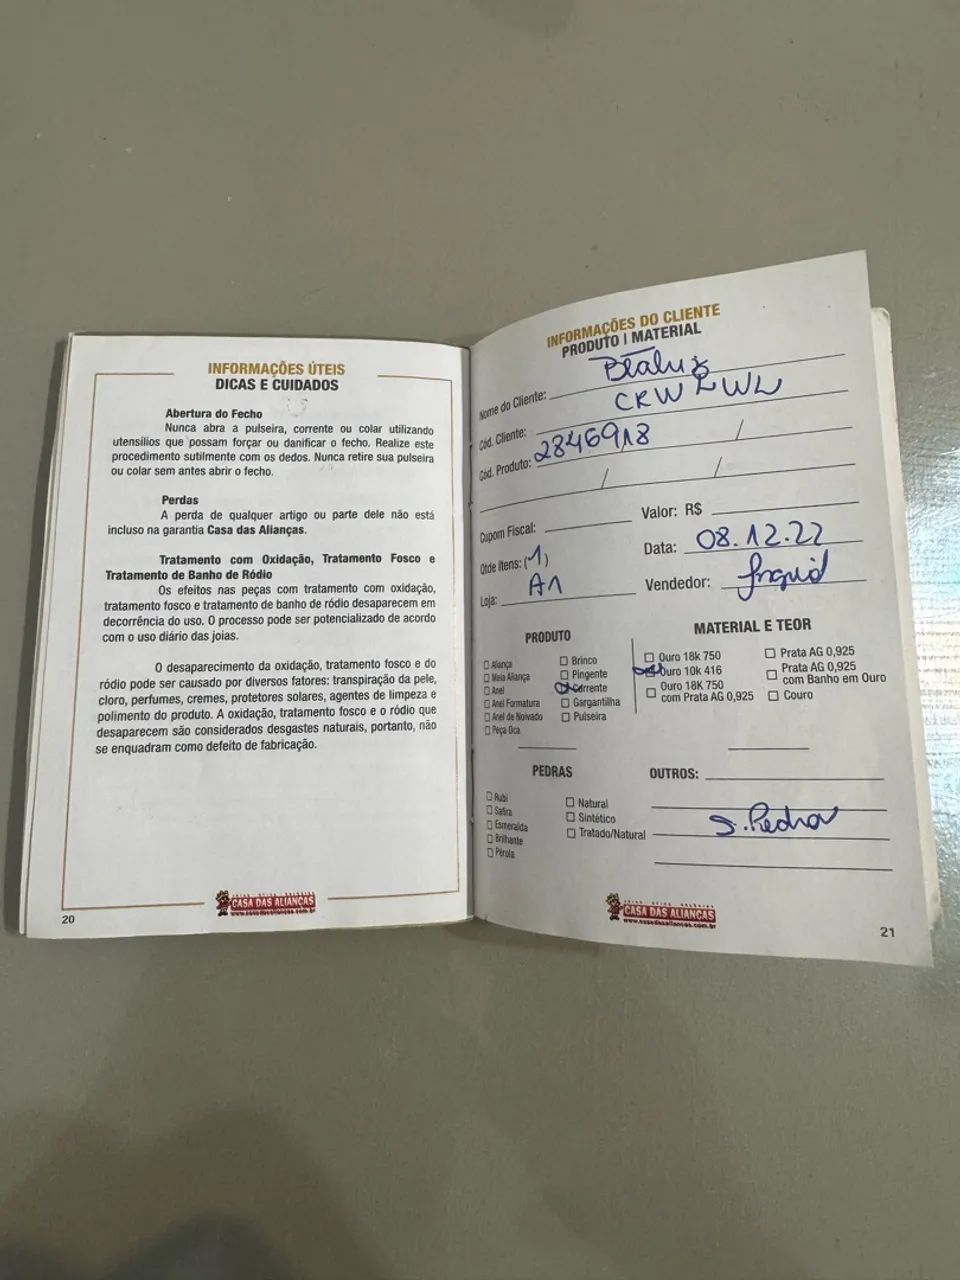 INFORMAÇÕES ÚTEIS
DICAS E CUIDADOS
Abertura do Fecho
Nunca abra a pulseira, corrente ou colar utilizando
utensílios que possam forçar ou danificar o fecho. Realize este
procedimento sutilmente com os dedos. Nunca retire sua pulseira
ou colar sem antes abrir o fecho.
Perdas
A perda de qualquer artigo ou parte dele não está
incluso na garantia Casa das Alianças.
Tratamento com Oxidação, Tratamento Fosco e
Tratamento de Banho de Ródio
Os efeitos nas peças com tratamento com oxidação,
tratamento fosco e tratamento de banho de ródio desaparecem em
decorrência do uso. O processo pode ser potencializado de acordo
com o uso diário das joias.
O desaparecimento da oxidação, tratamento fosco e do
ródio pode ser causado por diversos fatores: transpiração da pele,
cloro, perfumes, cremes, protetores solares, agentes de limpeza e
polimento do produto. A oxidação, tratamento fosco e o ródio que
desaparecem são considerados desgastes naturais, portanto, não
se enquadram como defeito de fabricação.
CASA DAS ALIANÇAS
www.casadasaliancas.com.br
20
INFORMAÇÕES DO CLIENTE
PRODUTO | MATERIAL
Nome do Cliente: Beatriz
Cód. Cliente: CRW
Cód. Produto: 2846918 /
/ /
Cupom Fiscal: Valor: R$
Qtde Itens: (1) Data: 08.12.22
Loja: A1 Vendedor: Ingrid
PRODUTO
Aliança
Meia Aliança
Anel
Anel Formatura
Anel de Noivado
Peça Oca
Brinco
Pingente
Corrente
Gargantilha
Pulseira
MATERIAL E TEOR
Ouro 18k 750
Ouro 10k 416
Ouro 18k 750
com Prata AG 0,925
Prata AG 0,925
Prata AG 0,925
com Banho em Ouro
Couro
PEDRAS
Rubi
Safira
Esmeralda
Brilhante
Pérola
Natural
Sintético
Tratado/Natural
OUTROS:
S. Pedra
CASA DAS ALIANÇAS
www.casadasaliancas.com.br
21